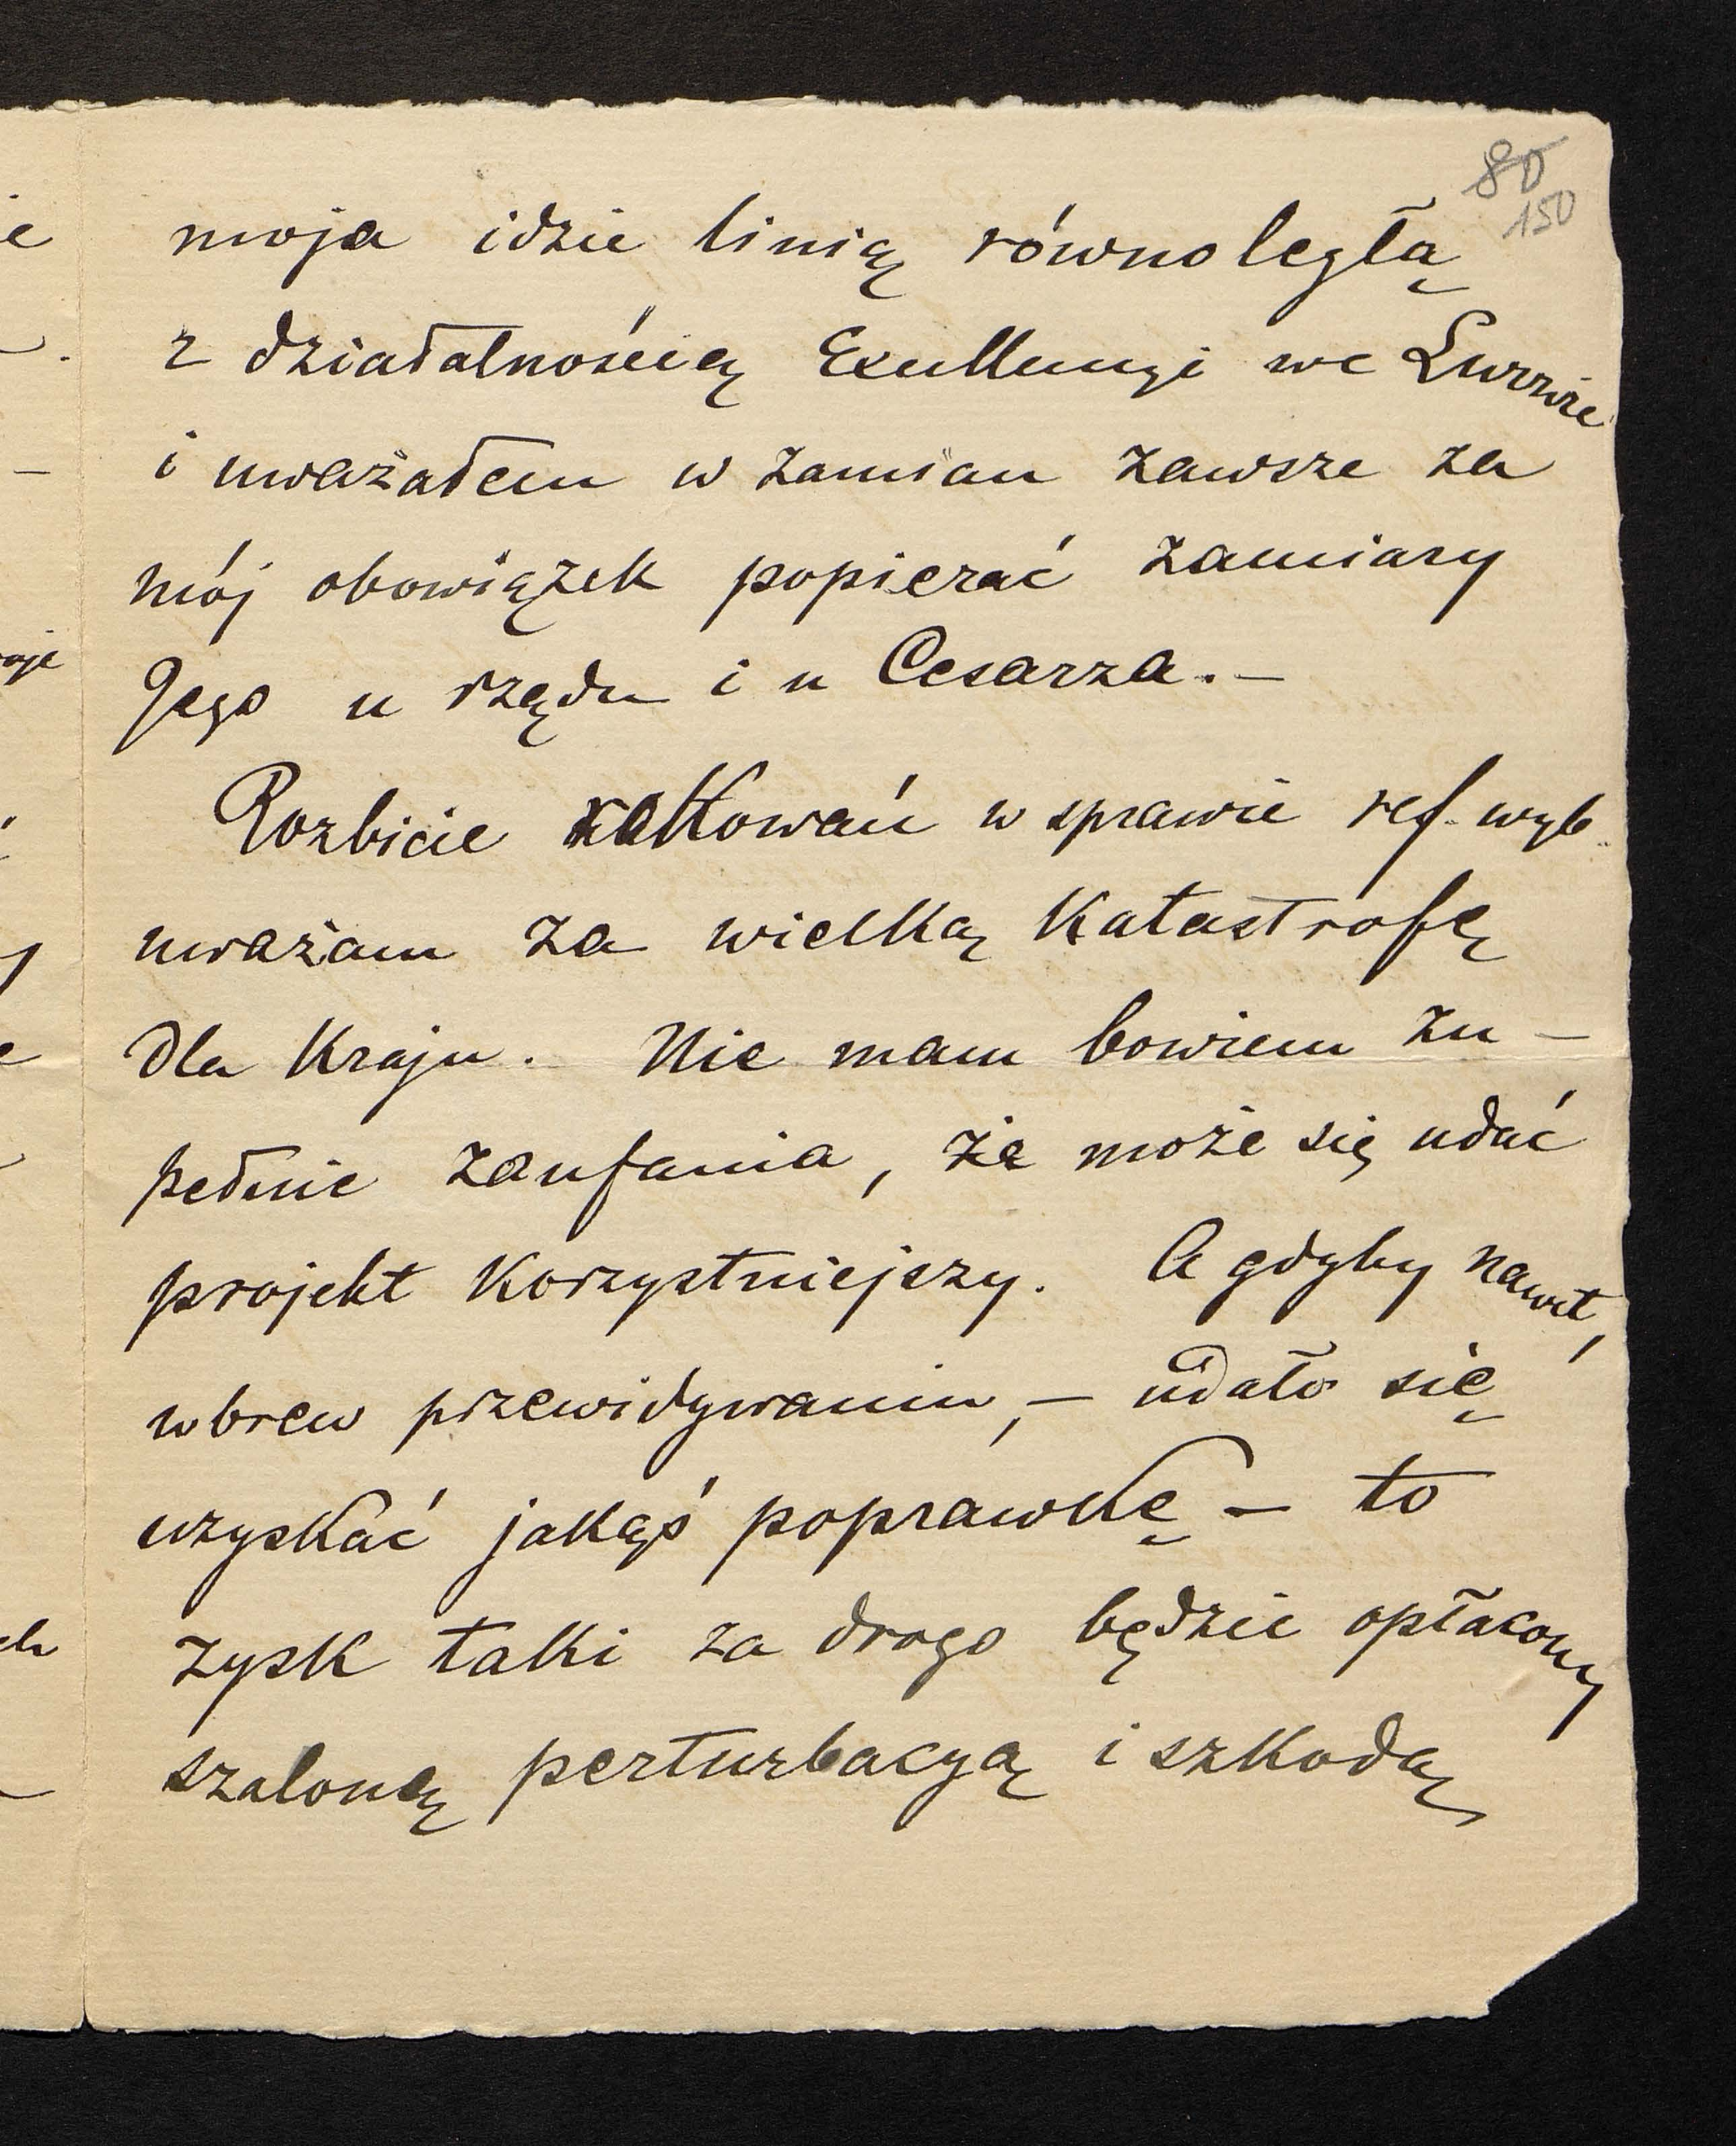 80
150
moja idzie linią równoległą
z działalnością Excellencyi we Lwowie
i uważałem w zamian zawsze za
mój obowiązek popierać zamiary
Jego u rządu i u Cesarza. —
Rozbicie rokowań w sprawie ref. wyb.
uważam za wielką katastrofę
dla Kraju. Nie mam bowiem zu-
pełnie zaufania, że może się udać
projekt korzystniejszy. A gdyby nawet,
wbrew przewidywaniu, — udało się
uzyskać jakąś poprawkę — to
zysk taki za drogo będzie opłacony
szaloną perturbacyą i szkodą